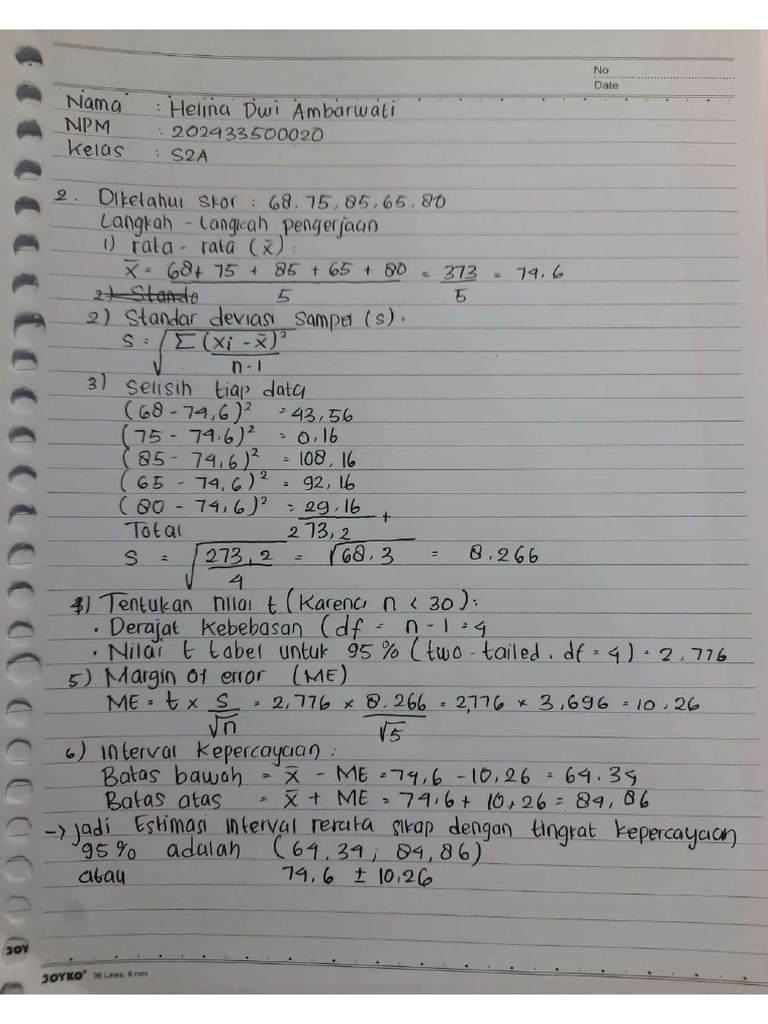 No
Date
Nama : Helina Dwi Ambarwati
NPM : 202433500020
Kelas : S2A
2. Diketahui skor : 68, 75, 85, 65, 80
Langkah - Langkah pengerjaan
1) rata - rata (x̄) :
x̄ = 68 + 75 + 85 + 65 + 80 / 5 = 373 / 5 = 74.6
2) Stande
2) Standar deviasi Sampel (s).
S = √ Σ (xi - x̄)² / n-1
3) Selisih tiap data
(68 - 74,6)² = 43,56
(75 - 74.6)² = 0,16
(85 - 74,6)² = 108,16
(65 - 74,6)² = 92,16
(80 - 74,6)² = 29.16 +
Total 273,2
S = √ 273,2 / 4 = √68,3 = 8.266
4) Tentukan nilai t (Karena n < 30) :
• Derajat Kebebasan (df = n - 1 = 4
• Nilai t tabel untuk 95% (two-tailed, df = 4) = 2,776
5) Margin of error (ME)
ME = t × S / √n = 2,776 × 8.266 / √5 = 2,776 × 3,696 = 10,26
6) Interval Kepercayaan :
Batas bawah = x̄ - ME = 74,6 - 10,26 = 64.34
Batas atas = x̄ + ME = 74,6 + 10,26 = 84,86
-> Jadi Estimasi interval rerata sikap dengan tingkat kepercayaan
95% adalah (64,34 ; 84,86)
atau 74,6 ± 10,26
JOY
JOYKO® 36 Lines, 6 mm